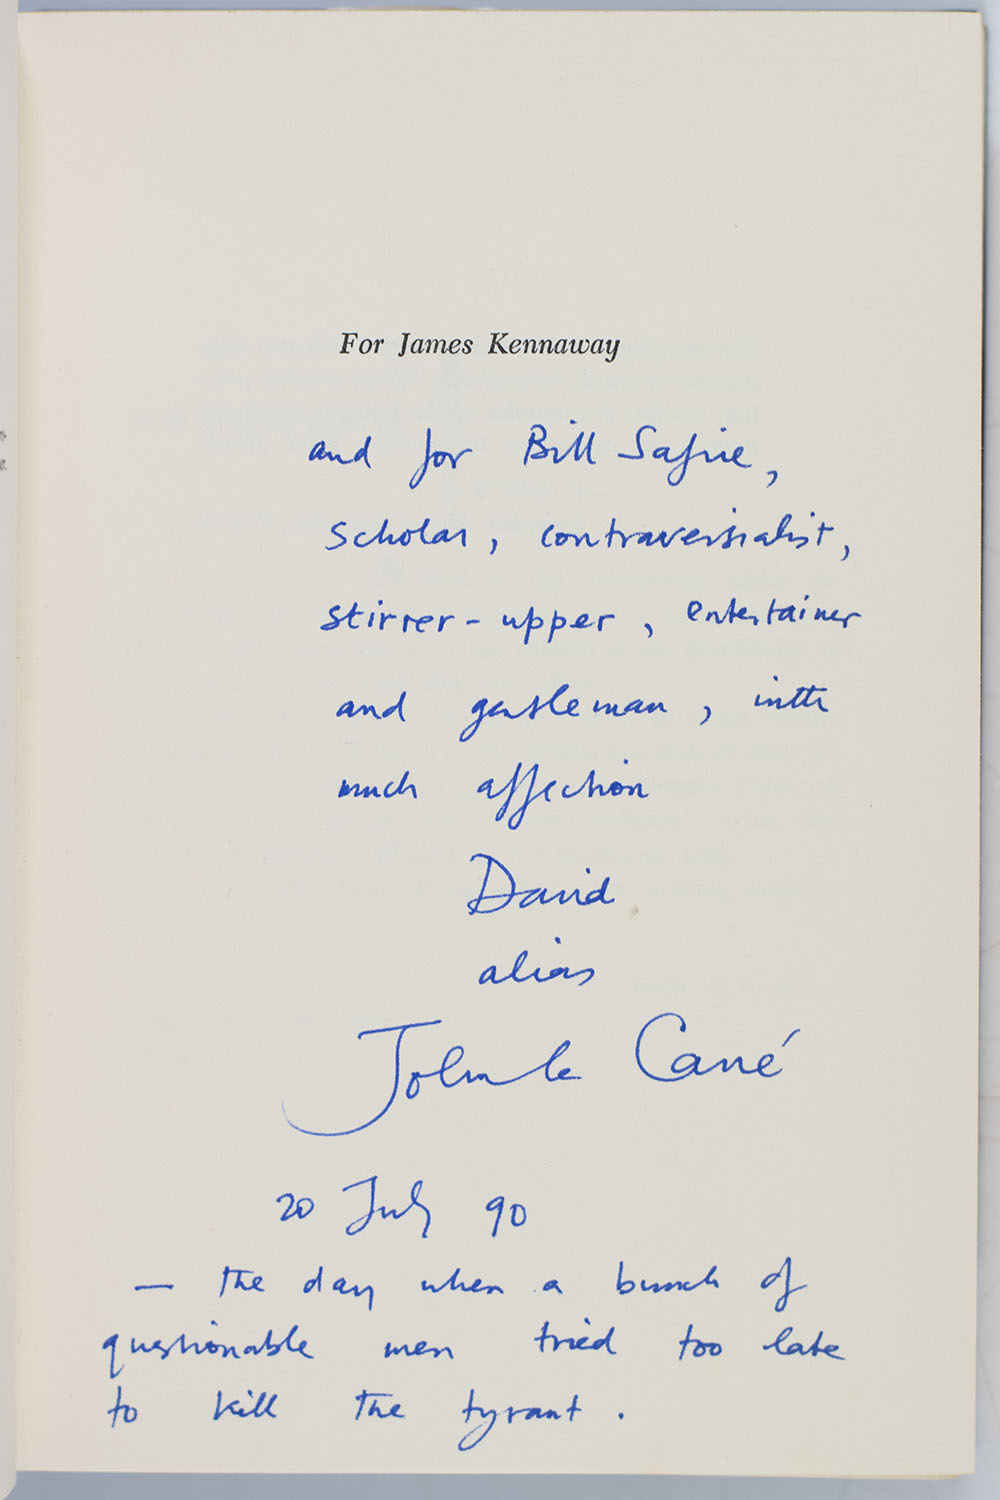 For James Kennaway
and for Bill Safire,
scholar, contraversialist,
stirrer-upper, entertainer
and gentleman, with
much affection
David
alias
John le Carré
20 July 90
— the day when a bunch of
questionable men tried too late
to kill the tyrant.